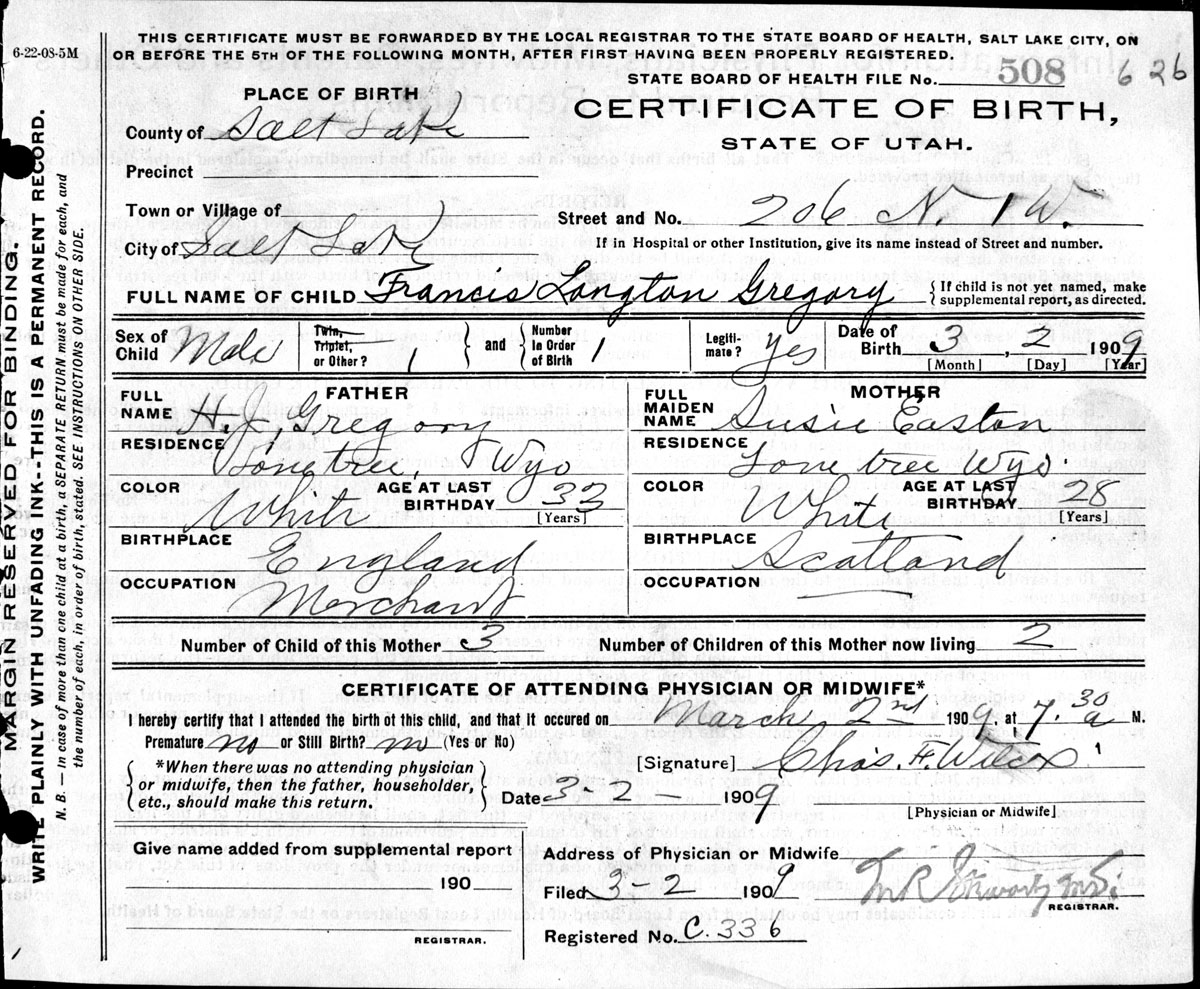 6-22-08-5M
THIS CERTIFICATE MUST BE FORWARDED BY THE LOCAL REGISTRAR TO THE STATE BOARD OF HEALTH, SALT LAKE CITY, ON
OR BEFORE THE 5TH OF THE FOLLOWING MONTH, AFTER FIRST HAVING BEEN PROPERLY REGISTERED.
STATE BOARD OF HEALTH FILE No. 508 626
PLACE OF BIRTH
CERTIFICATE OF BIRTH,
STATE OF UTAH.
County of Salt Lake
Precinct
Town or Village of
Street and No. 206 N 1 W.
City of Salt Lake
If in Hospital or other Institution, give its name instead of Street and number.
FULL NAME OF CHILD Francis Longton Gregory
{If child is not yet named, make
supplemental report, as directed.
Sex of Child Male
Twin, Triplet, or Other? 1
and
Number in Order of Birth 1
Legitimate? yes
Date of Birth 3, 2 1909
[Month] [Day] [Year]
FATHER
FULL NAME Gregory
RESIDENCE Lonetree, Wyo
COLOR White
AGE AT LAST BIRTHDAY 33
[Years]
BIRTHPLACE England
OCCUPATION Merchant
MOTHER
FULL MAIDEN NAME Susie Easton
RESIDENCE Lone tree Wyo.
COLOR White
AGE AT LAST BIRTHDAY 28
[Years]
BIRTHPLACE Scotland
OCCUPATION
Number of Child of this Mother 3
Number of Children of this Mother now living 2
CERTIFICATE OF ATTENDING PHYSICIAN OR MIDWIFE*
I hereby certify that I attended the birth of this child, and that it occured on March 2nd 1909, at 7.30 a M.
Premature no or Still Birth? no (Yes or No)
{*When there was no attending physician
or midwife, then the father, householder,
etc., should make this return.}
[Signature] Chas. F. Wilcox
Date 3-2- 1909
[Physician or Midwife]
Give name added from supplemental report
190
REGISTRAR.
Address of Physician or Midwife
Filed 3-3 1909
M.D.
REGISTRAR.
Registered No. C. 336
MARGIN RESERVED FOR BINDING.
WRITE PLAINLY WITH UNFADING INK--THIS IS A PERMANENT RECORD.
N. B. — In case of more than one child at a birth, a SEPARATE RETURN must be made for each, and
the number of each, in order of birth, stated. SEE INSTRUCTIONS ON OTHER SIDE.